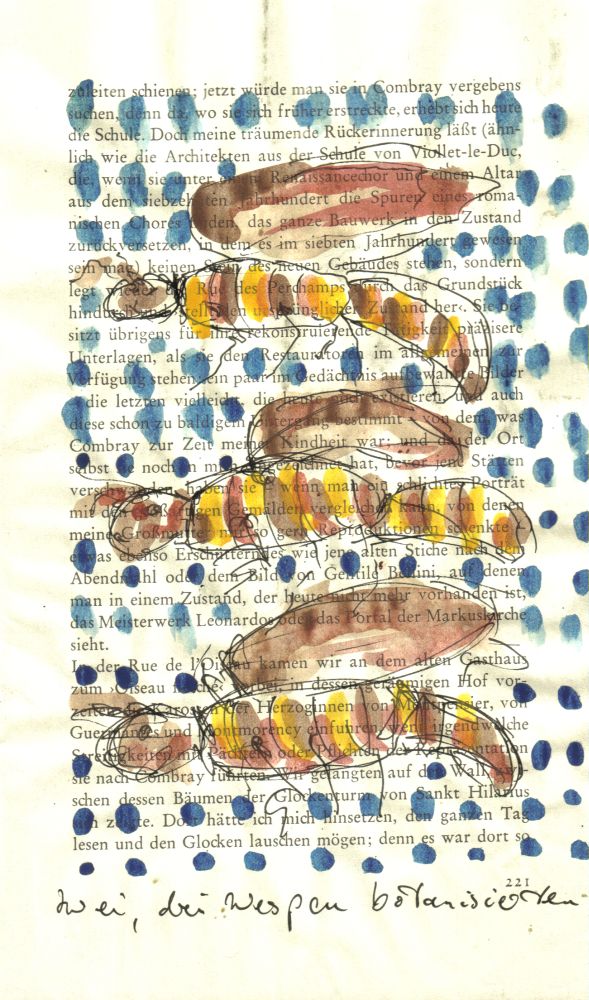 zuleiten schienen; jetzt würde man sie in Combray vergebens
suchen, denn da, wo sie sich früher erstreckte, erhebt sich heute
die Schule. Doch meine träumende Rückerinnerung läßt (ähn-
lich wie die Architekten aus der Schule von Viollet-le-Duc,
die, wenn sie unter einem Renaissancechor und einem Altar
aus dem siebzehnten Jahrhundert die Spuren eines roma-
nischen Chores finden, das ganze Bauwerk in den Zustand
zurückversetzen, in dem es im siebten Jahrhundert gewesen
sein mag) keinen Stein des neuen Gebäudes stehen, sondern
legt wieder die Rue des Perchamps durch das Grundstück
hindurch und stellt den ursprünglichen Zustand her. Sie be-
sitzt übrigens für ihre rekonstruierende Tätigkeit präzisere
Unterlagen, als sie den Restauratoren im allgemeinen zur
Verfügung stehen: ein paar im Gedächtnis aufbewahrte Bilder
– die letzten vielleicht, die heute noch existieren, und auch
diese schon zu baldigem Untergang bestimmt – von dem, was
Combray zur Zeit meiner Kindheit war; und da der Ort
selbst sie noch in mir eingezeichnet hat, bevor jene Stätten
verschwanden, haben sie – wenn man ein schlichtes Porträt
mit den großartigen Gemälden vergleichen kann, von denen
meine Großmutter mir so gern Reproduktionen schenkte –
etwas ebenso Erschütterndes wie jene alten Stiche nach dem
Abendmahl oder dem Bild von Gentile Bellini, auf denen
man in einem Zustand, der heute nicht mehr vorhanden ist,
das Meisterwerk Leonardos oder das Portal der Markuskirche
sieht.
In der Rue de l'Oiseau kamen wir an dem alten Gasthaus
zum ›Oiseau flesché‹ vorbei, in dessen geräumigen Hof vor-
zeiten die Karossen der Herzoginnen von Montpensier, von
Guermantes und Montmorency einfuhren, wenn irgendwelche
Streitigkeiten mit Pächtern oder Pflichten der Repräsentation
sie nach Combray führten. Wir gelangten auf den Wall, zwi-
schen dessen Bäumen der Glockenturm von Sankt Hilarius
sich zeigte. Dort hätte ich mich hinsetzen, den ganzen Tag
lesen und den Glocken lauschen mögen; denn es war dort so
221
zwei, drei Wespen botanisierten